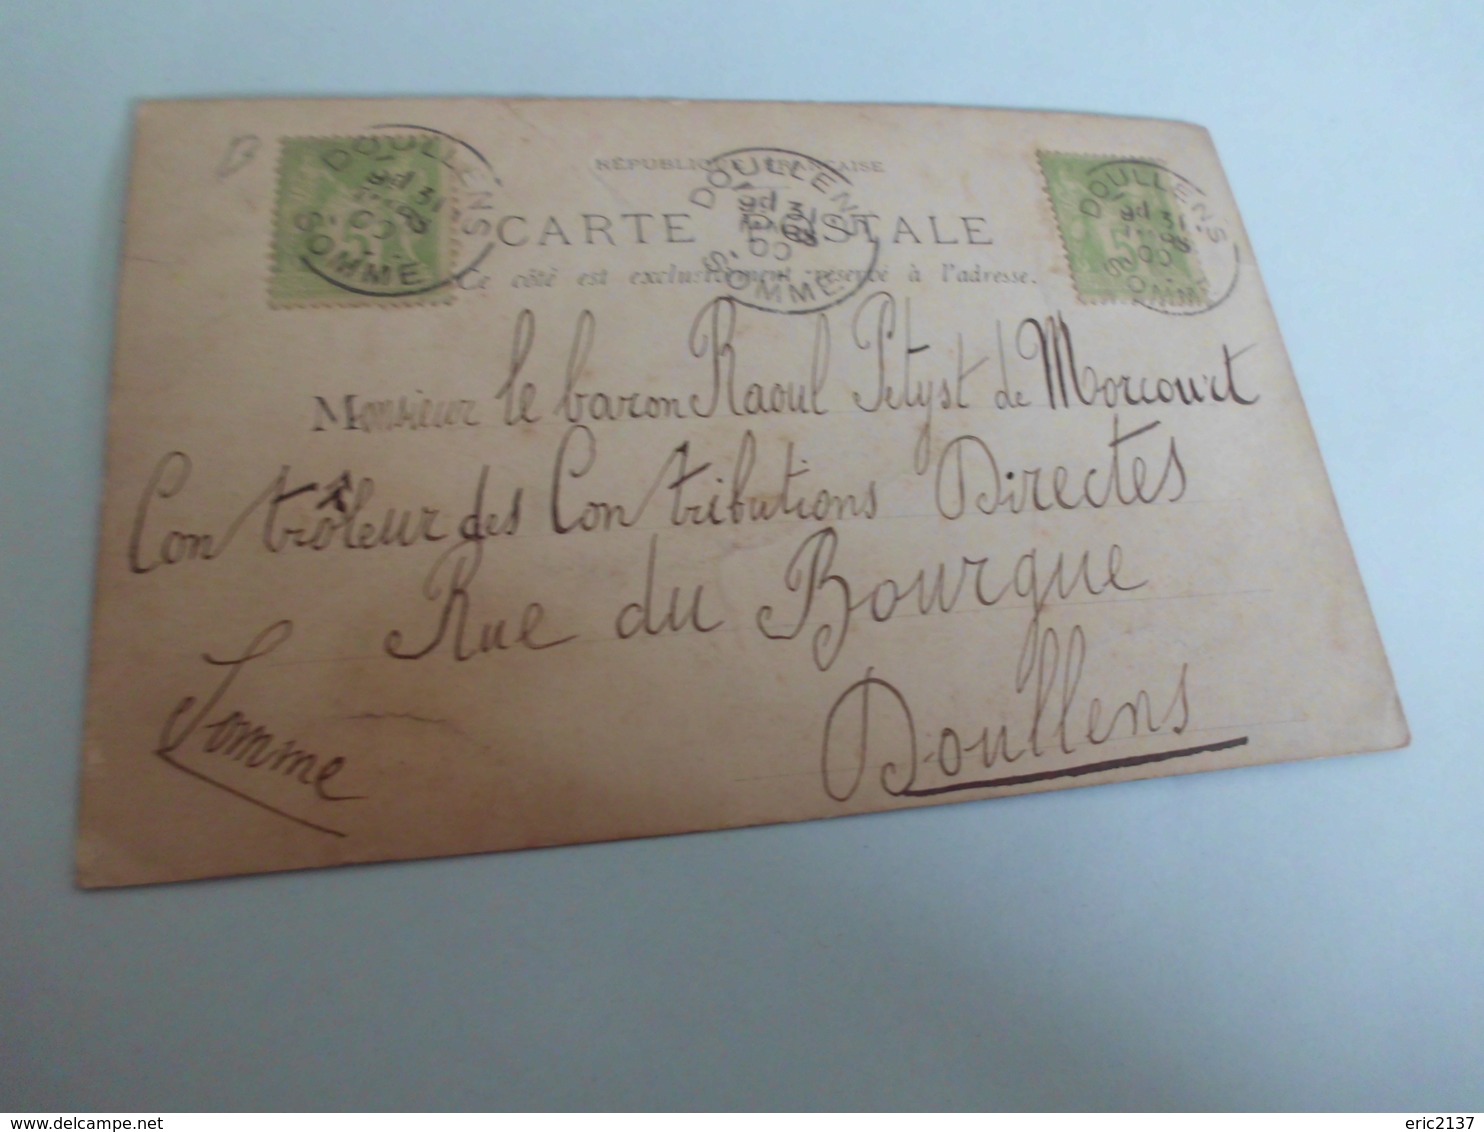 RÉPUBLIQUE FRANÇAISE
CARTE POSTALE
Ce côté est exclusivement réservé à l'adresse.
DOULLENS
SOMME
5
DOULLENS
SOMME
DOULLENS
SOMME
5
Monsieur le baron Raoul Petyst de Morcourt
Contrôleur des Contributions Directes
Rue du Bourgue
Doullens
Somme
delcampe.net
eric2137